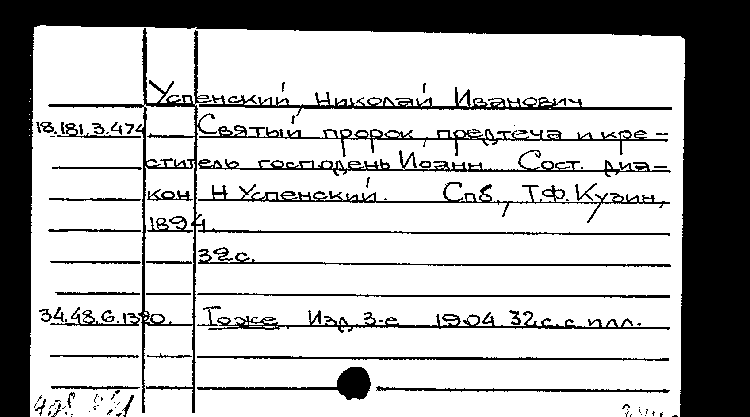 Успенский, Николай Иванович
18.181.3.474 Святый пророк, предтеча и кре-
ститель господень Иоанн. Сост. диа-
кон Н. Успенский. Спб., Т.Ф. Кузин,
1894.
32 с.
34.48.6.1320. То же. Изд. 3-е 1904. 32 с. с илл.